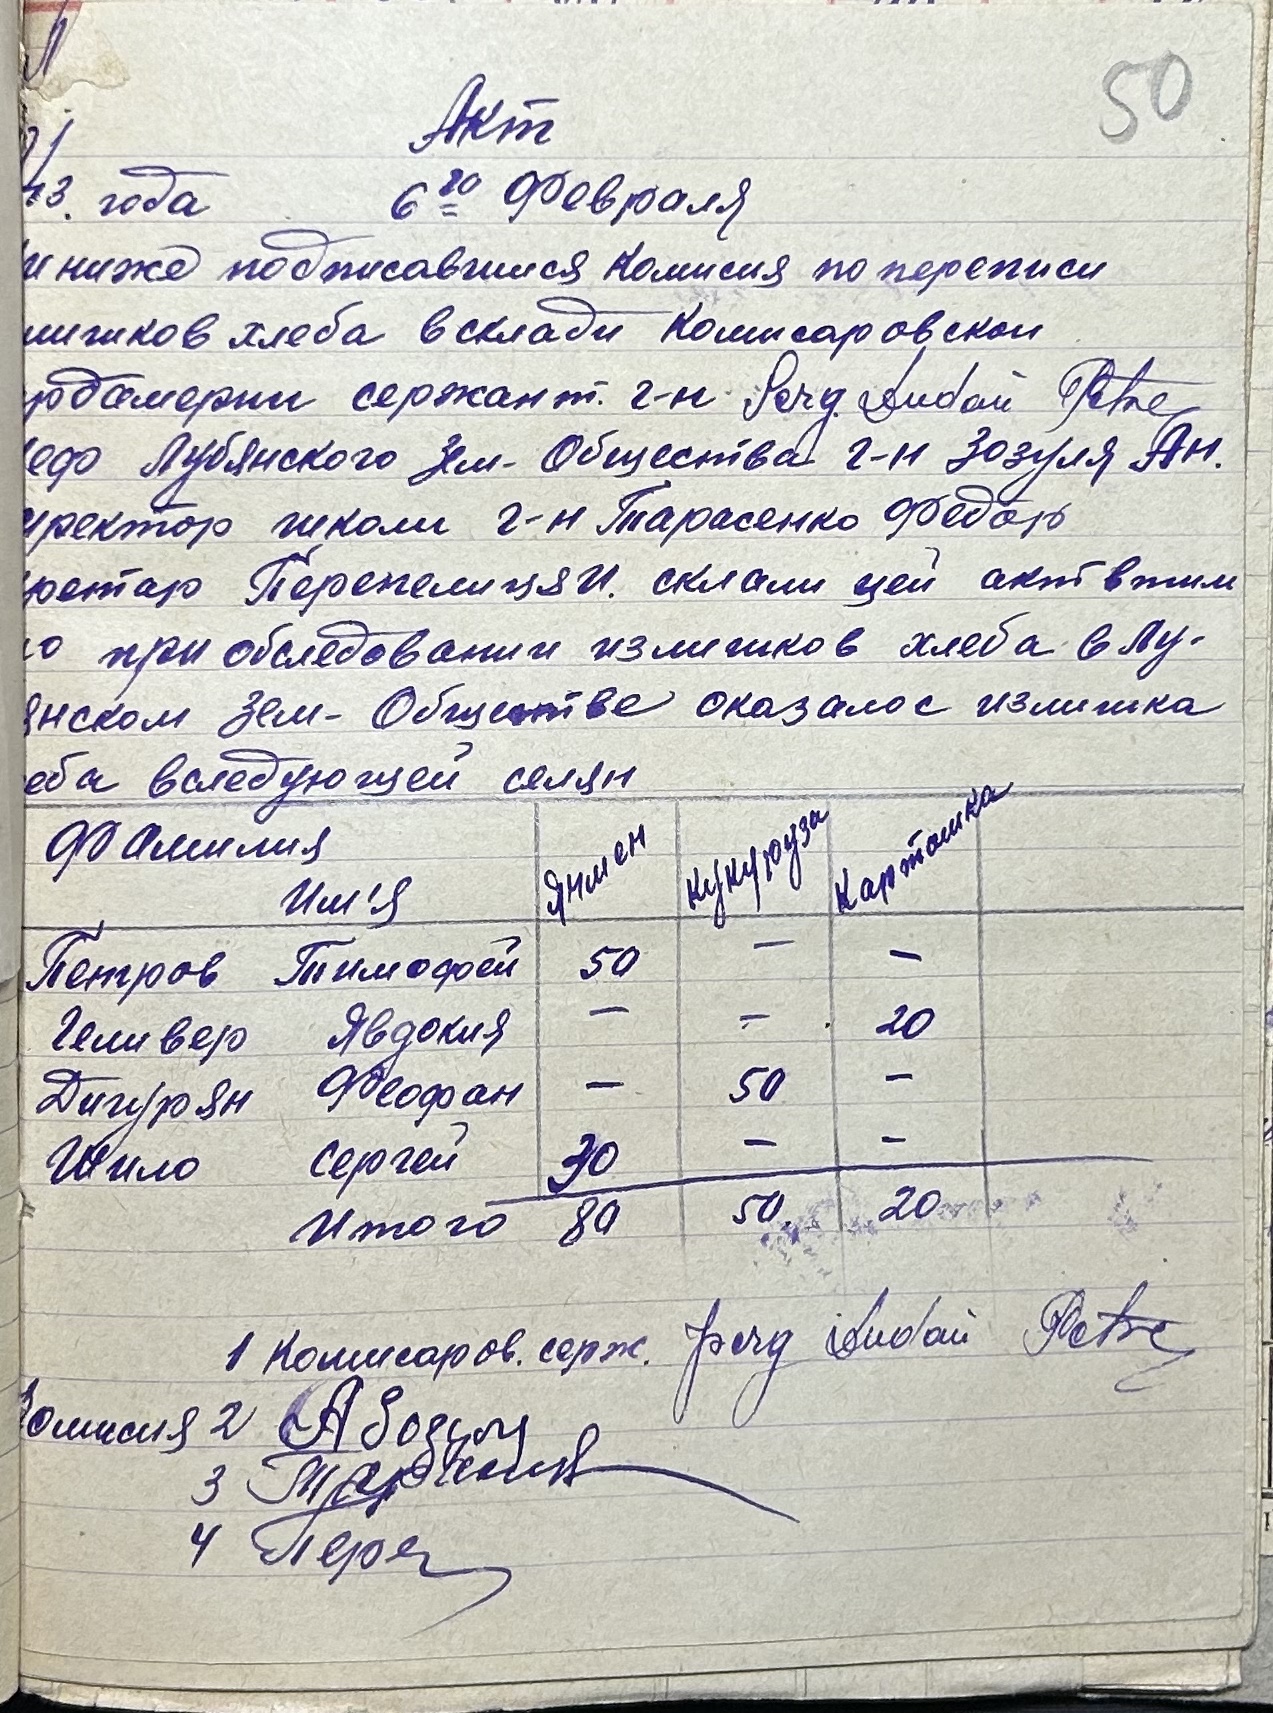 50
Акт
43. года 6го Февраля
ниже подписавшиеся Комисия по переписи
лишков хлеба в склади Комисаровскои
сержант. г-н Serg. Petre
Лубянского Зем- Общества г-н Зозуля Ан.
иректор школи г-н Тарасенко Федор
ретар Перепелиця И. склали цей акт втим
при обследовании излишков хлеба в Лу-
янском Зем- Обществе оказалос излишка
еба вследующей селян
Фамилия Им'я Янмен Кукуруза Картошка
Петров Тимофей 50 — —
Гельвер Явдокия — — 20
Дигурян Феофан — 50 —
Шило Сергей 30 — —
Итого 80 50. 20
1 Комисаров. серж. Serg Petre
омисия 2 А Зозуля
3
4 Пере